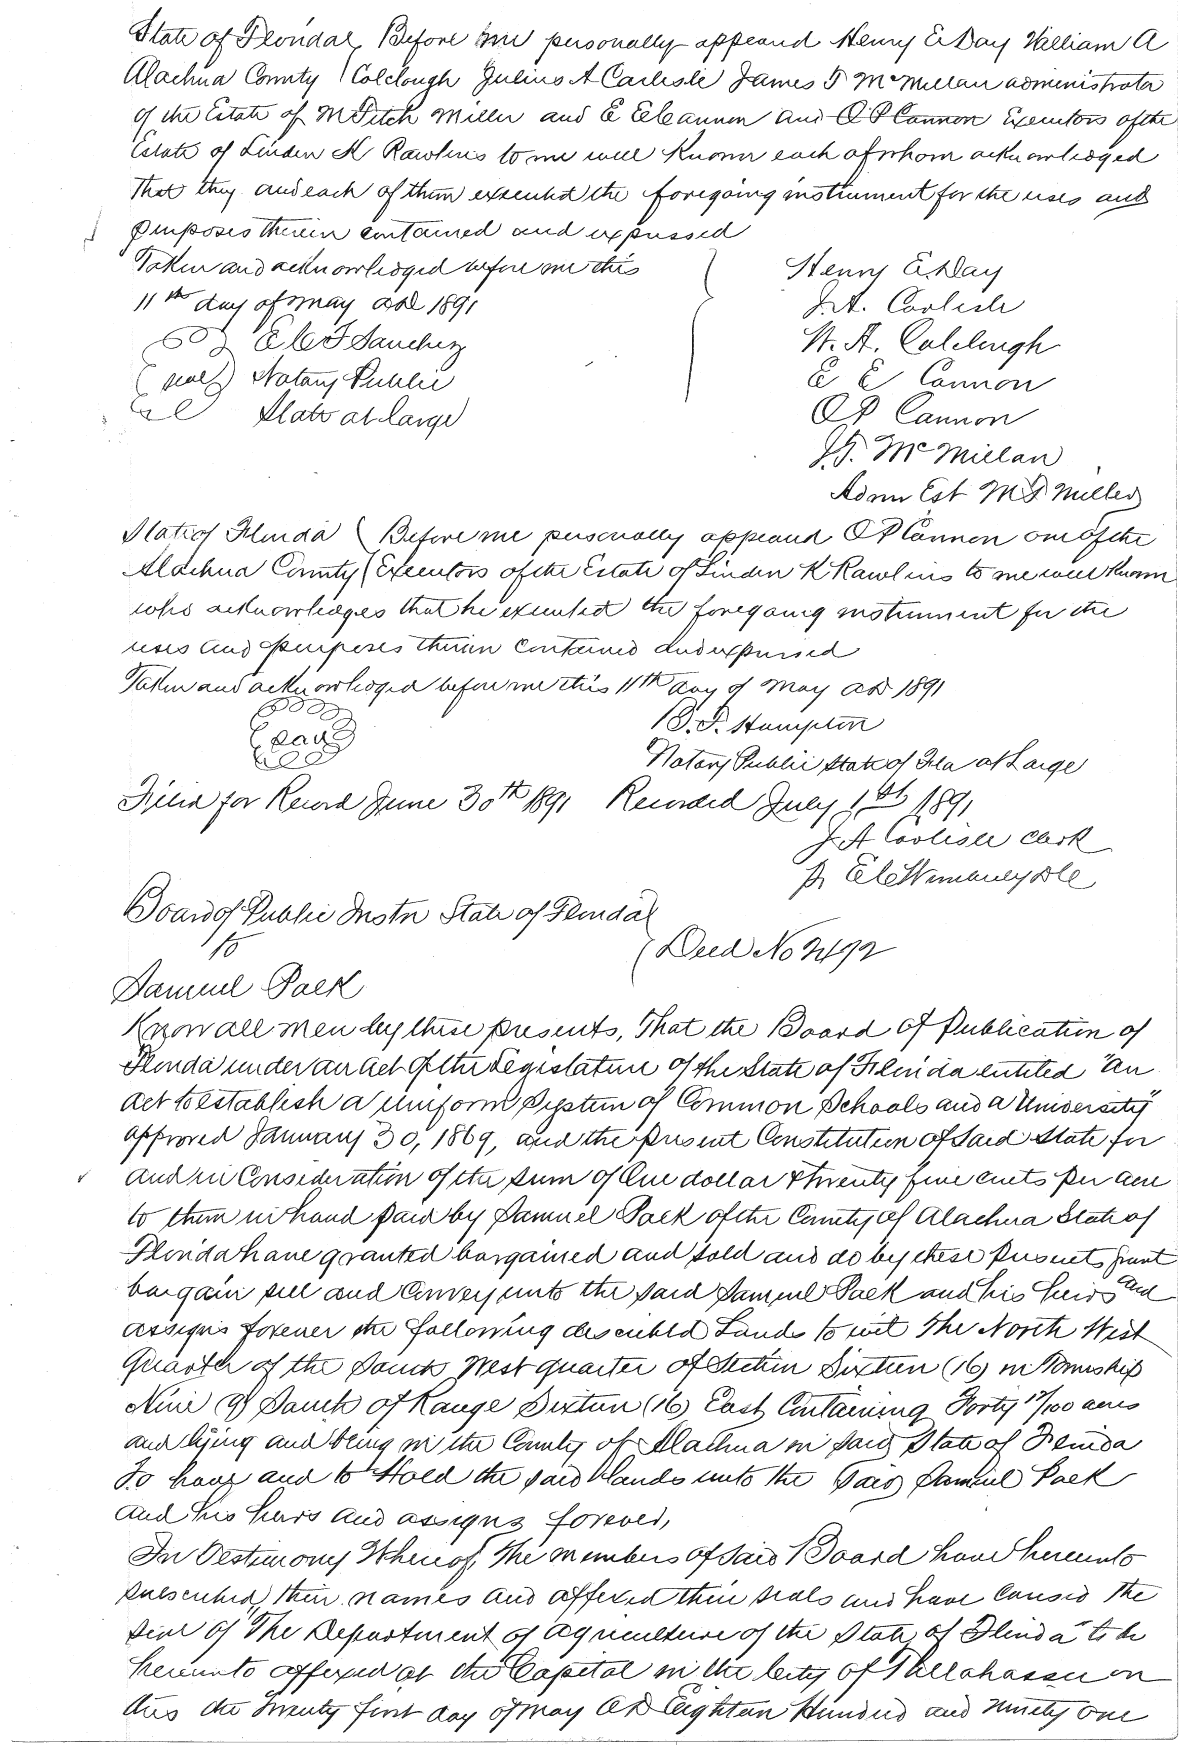 State of Florida } Before me personally appeared Henry E Day William A
Alachua County } Colclough Julius A Carlisle James T McMillan administrator
of the Estate of M Fitch Miller and E E Cannon and O P Cannon Executors of the
Estate of Linden K Rawlins to me well known each of whom acknowledged
That they and each of them executed the foregoing instrument for the uses and
purposes therein contained and expressed
Taken and acknowledged before me this
11th day of May AD 1891
E C F Sanchez
(seal) Notary Public
State at large
Henry E. Day
J. A. Carlisle
W. A. Colclough
E E Cannon
O P Cannon
J. T. McMillan
Admr Est M F Miller
State of Florida ( Before me personally appeared O P Cannon one of the
Alachua County ( Executors of the Estate of Linden K Rawlins to me well known
who acknowledges that he executed the foregoing instrument for the
uses and purposes therein contained and expressed
Taken and acknowledged before me this 11th day of May AD 1891
(seal)
B. F. Hampton
Notary Public State of Fla at Large
Filed for Record June 30th 1891 Recorded July 1st 1891
J A Carlisle Clerk
Board of Public Instn State of Florida
to
( Deed No 2492
Samuel Paek
Know all men by these presents, That the Board of Publication of
Florida under an Act of the Legislature of the State of Florida entitled "An
Act to establish a uniform System of Common Schools and a University"
approved January 30, 1869, and the present Constitution of Said State for
and in Consideration of the sum of One dollar & twenty five cents per acre
to them in hand paid by Samuel Paek of the County of Alachua State of
Florida have granted bargained and sold and do by these presents grant
bargain sell and Convey unto the said Samuel Paek and his heirs and
assigns forever the following described Lands to wit The North West
Quarter of the South West quarter of Section Sixteen (16) in Township
Nine (9) South of Range Sixteen (16) East Containing Forty 17/100 acres
and lying and being in the County of Alachua in said State of Florida
To have and to Hold the said lands unto the Said Samuel Paek
and his heirs and assigns forever,
In Testimony Whereof, The members of Said Board have hereunto
subscribed their names and affixed their seals and have caused the
seal of "The Department of Agriculture of the State of Florida" to be
hereunto affixed at the Capital in the City of Tallahassee on
this the twenty first day of May AD Eighteen Hundred and Ninety one